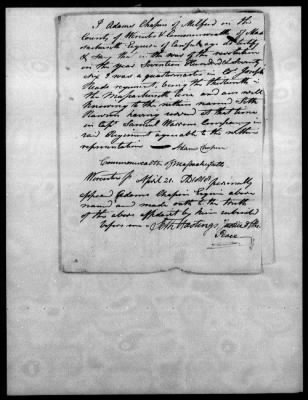 I Adams Chapin of Milford in the
County of Worcester & Commonwealth of Mas
sachusetts Esquire of lawful age do testify
& say that in the war of the revolution
in the year Seventeen Hundred & Seventy
six I was a quartermaster in Col. Joseph
Reads regiment, being the thirteenth in
the Massachusetts line and am well
knowing to the within named Seth
having served at that time
in Capt. Samuel Warren Company in
said Regiment agreeable to the within
representation — Adams Chapin
Commonwealth of Massachusetts
Worcester ss April 21. 1818 personally
appeared Adams Chapin Esquire above
named and made oath to the truth
of the above affidavit by him subscribed
before me — Seth Hastings Justice of the
Peace